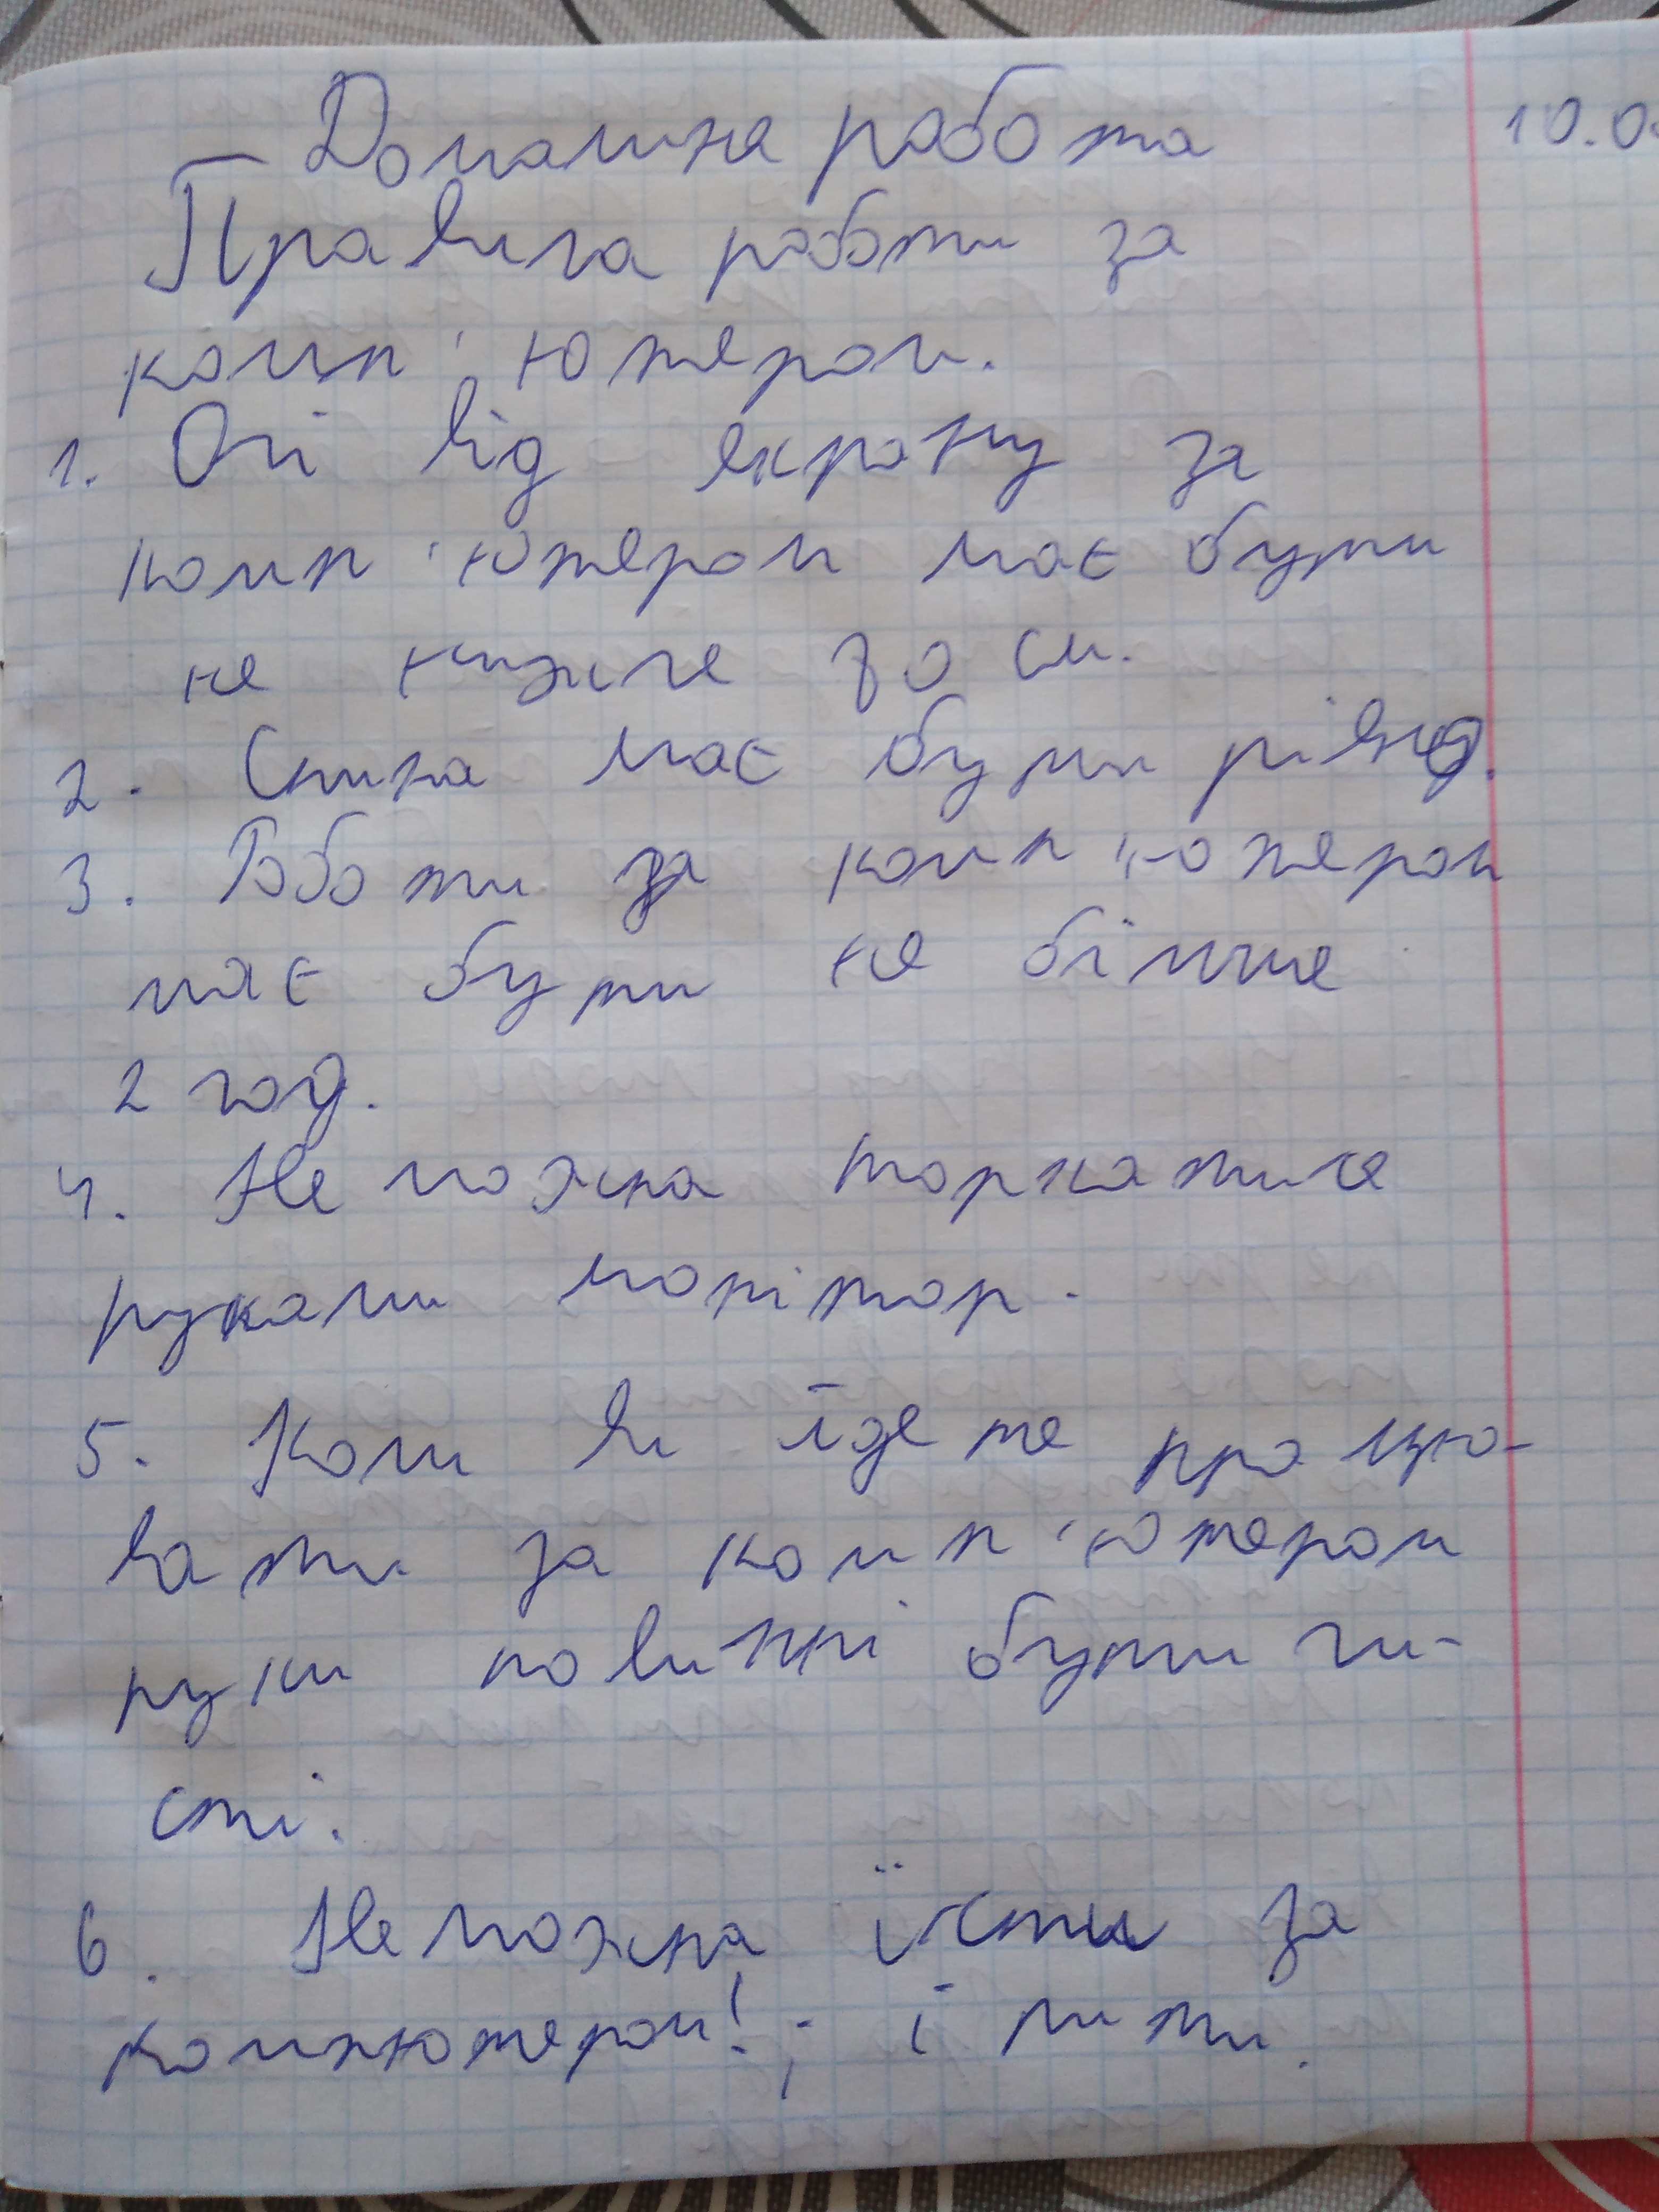 Домашня работа 10.0
Правила роботи за
комп'ютером.
1. Очі від екрану за
комп'ютером має бути
не нижче 30 см.
2. Спина має бути рівно.
3. Роботи за комп'ютером
має бути не більше
2 год.
4. Не можна торкатися
руками монітор.
5. Коли ви їдете працю-
вати за комп'ютером
руки повинні бути чи-
сті.
6. Не можна їсти за
компютером!; і пити.